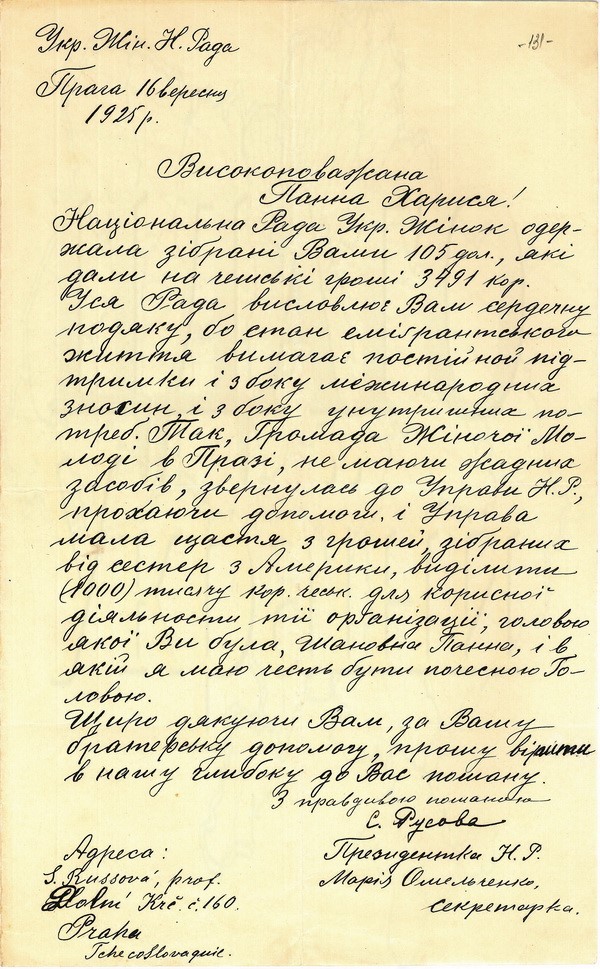 Укр. Жін. Н. Рада
-131-
Прага 16 вересня
1925 р.
Високоповажана
Панна Харися!
Національна Рада Укр. Жінок одер-
жала зібрані Вами 105 дол., які
дали на чешські гроші 3491 кор.
Уся Рада висловлює Вам сердечну
подяку, бо стан емігрантського
життя вимагає постійной під-
тримки і з боку межинародних
зносин, і з боку унутришних по-
треб. Так, Громада Жіночої Мо-
лоді в Празі, не маючи жадних
засобів, звернулась до Управи Н.Р.,
прохаючи допомоги. і Управа
мала щастя з грошей, зібраних
від сестер з Америки, виділити
(1000) тисячу кор. чеськ. для корисної
діяльности тії організації, головою
якої Ви була, Шановна Панна, і в
якій я маю честь бути почесною Го-
ловою.
Щиро дякуючи Вам, за Вашу
братерську допомогу, прошу вірити
в нашу глибоку до Вас пошану.
З правдивою пошаною
С. Русова
Президентка Н.Р.
Марія Омельченко,
секретарка.
Адреса:
S. Russová, prof.
Dolní Krč. č. 160.
Praha
Tchecoslovaquie.